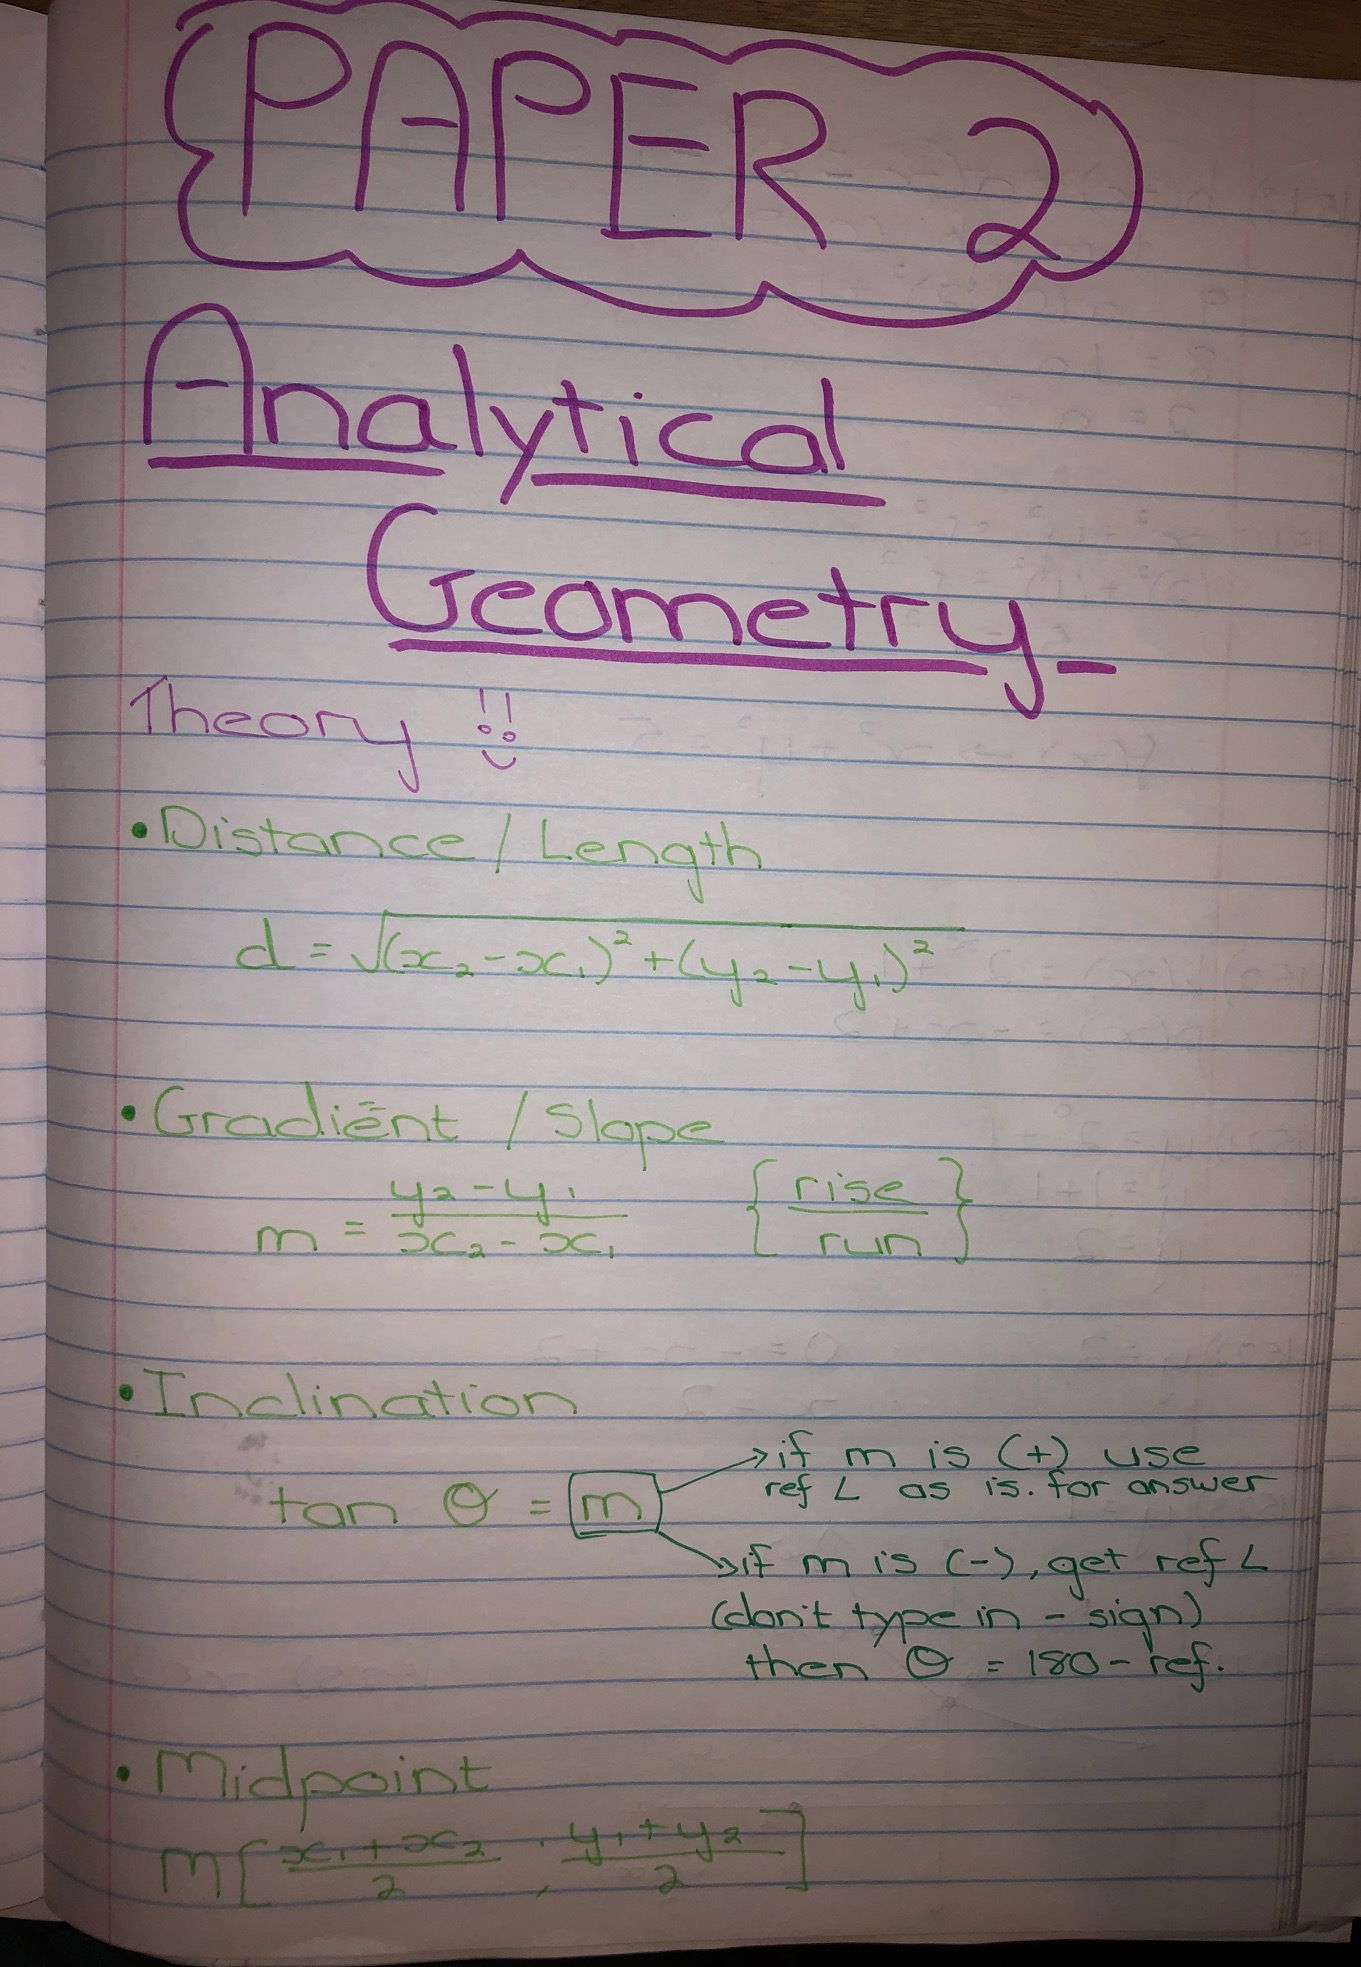 PAPER 2
Analytical
Geometry
Theory !!
• Distance / Length
d = √(x₂ - x₁)² + (y₂ - y₁)²
• Gradient / Slope
m = y₂ - y₁ / x₂ - x₁ { rise / run }
• Inclination
→ if m is (+) use
ref ∠ as is. for answer
tan θ = m
→ if m is (-), get ref ∠
(don't type in - sign)
then θ = 180 - ref.
• Midpoint
m [ x₁ + x₂ / 2 , y₁ + y₂ / 2 ]